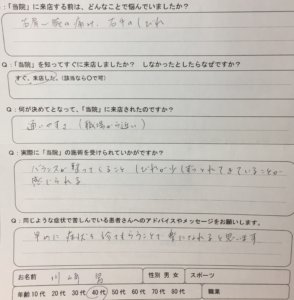 ：「当院」に来店する前は、どんなことで悩んでいましたか？
右肩〜腕の痛み、右手のしびれ
Q：「当院」を知ってすぐに来店しましたか？ しなかったとしたらなぜですか？
すぐ、来店した。（該当なら〇で可）
Q：何が決めてとなって、「当院」に来店されたのですか？
通いやすさ（職場から近い）
Q：実際に「当院」の施術を受けられていかがですか？
バランスが整ってくること しびれが少しずつとれてきていることが
感じられる
Q：同じような症状で苦しんでいる患者さんへのアドバイスやメッセージをお願いします。
早めに症状を診てもらうことで楽になれると思います
お名前 川崎 性別 男 女 スポーツ
年齢 10代 20代 30代 40代 50代 60代 70代 80代 職業